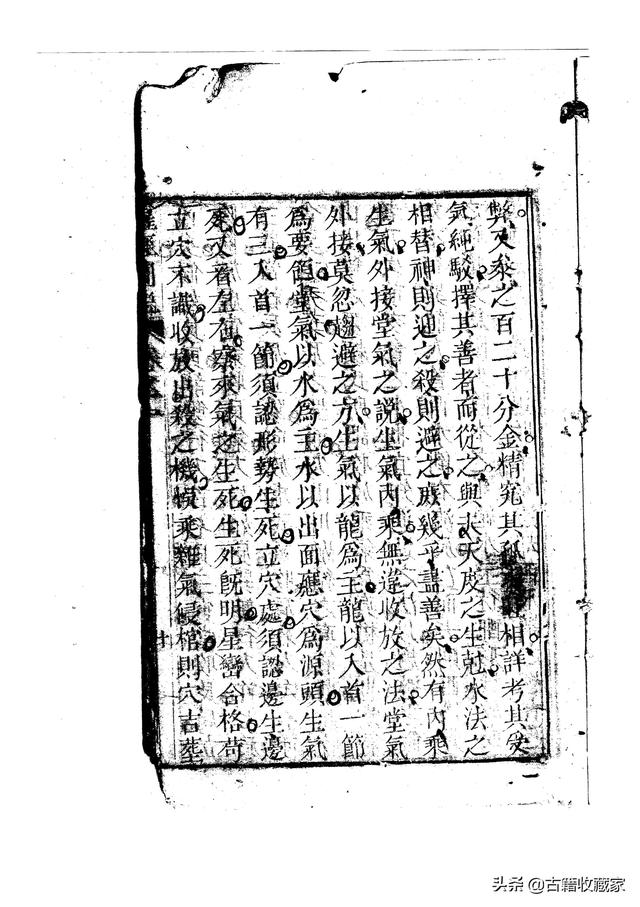 弊又叅之百二十分金精究其孤相詳考其受
氣純駁擇其善者而從之與夫天度之生尅水法之
相替神則迎之殺則避之庶幾乎盡善矣然有內乘
生氣外接堂氣之說生氣內乘無違收放之法堂氣
外接莫忽趨避之方生氣以龍爲主龍以入首一節
爲要領堂氣以水爲主水以出面應穴爲源頭生氣
有三入首一節須認形勢生死立穴處須認邊生邊
死又看左右察來氣之生死生死旣明星巒合格苟
立穴不識收放出殺之機悞乘雜氣侵棺則穴吉塟
頭条 @古籍收藏家